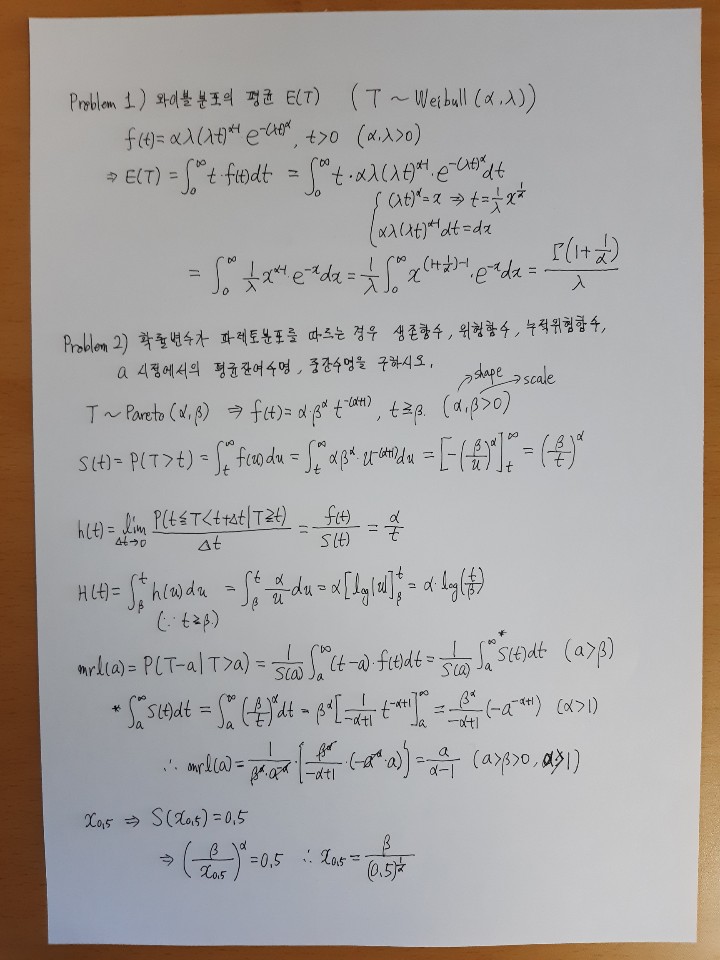 Problem 1) 와이블 분포의 평균 E(T) (T ~ Weibull (α,λ))
f(t) = αλ(λt)^{α-1} e^{-(λt)^α}, t>0 (α,λ>0)
⇒ E(T) = ∫_0^∞ t·f(t)dt = ∫_0^∞ t·αλ(λt)^{α-1}·e^{-(λt)^α}dt
{ (λt)^α = x ⇒ t = 1/λ x^{1/α}
αλ(λt)^{α-1}dt = dx
= ∫_0^∞ 1/λ x^{α-1}·e^{-x}dx = 1/λ ∫_0^∞ x^{(1+1/α)-1}·e^{-x}dx = Γ(1+1/α)/λ
Problem 2) 확률변수가 파레토분포를 따르는 경우 생존함수, 위험함수, 누적위험함수,
a 시점에서의 평균잔여수명, 중간수명을 구하시오.
shape
scale
T ~ Pareto (α,β) ⇒ f(t) = α·β^α t^{-(α+1)}, t≥β. (α,β>0)
S(t) = P(T>t) = ∫_t^∞ f(u)du = ∫_t^∞ αβ^α·u^{-(α+1)}du = [-(β/u)^α]_t^∞ = (β/t)^α
h(t) = lim_{Δt→0} P(t≤T<t+Δt|T≥t)/Δt = f(t)/S(t) = α/t
H(t) = ∫_β^t h(u)du = ∫_β^t α/u du = α[log|u|]_β^t = α·log(t/β)
(∵ t≥β.)
mrl(a) = P(T-a|T>a) = 1/S(a) ∫_a^∞ (t-a)·f(t)dt = 1/S(a) ∫_a^∞* S(t)dt (a>β)
* ∫_a^∞ S(t)dt = ∫_a^∞ (β/t)^α dt = β^α[1/(-α+1) t^{-α+1}]_a^∞ = β^α/(-α+1) (-a^{-α+1}) (α>1)
∴ mrl(a) = 1/(β^α·a^{-α})·{β^α/(-α+1)·(-a^{-α}·a)} = a/(α-1) (a>β>0, α>1)
x_{0.5} ⇒ S(x_{0.5}) = 0.5
⇒ (β/x_{0.5})^α = 0.5 ∴ x_{0.5} = β/(0.5)^{1/α}